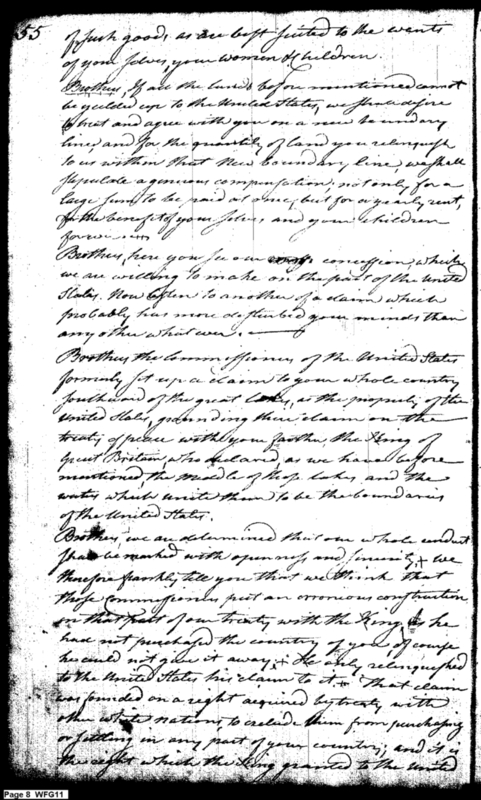 55
of such goods as are best suited to the wants
of your selves, your women & children.
Brothers, If all the lands before mentioned cannot
be yielded up to the United States, we shall desire
to treat and agree with you on a new boundary
line, and for the quantity of land you relinquish
to us within that New boundary line, we shall
stipulate a generous compensation, not only for a
large sum to be paid at once, but for a yearly rent,
for the benefit of your selves and your children
forever
Brothers, here you see our concession, which
we are willing to make on the part of the United
States. Now listen to another of a claim which
probably has more disturbed your minds than
any other what ever.
Brothers the Commissioners of the United States
formerly set up a claim to your whole country
southward of the great lakes, as the property of the
United States, grounding their claim on the
treaty of peace with your father the King of
Great Britain who declared, as we have before
mentioned the middle of those lakes, and the
waters which unite them to be the boundaries
of the United States.
Brothers we are determined that our whole conduct
shall be marked with openness and sincerity, + we
therefore frankly tell you that we think that
those Commissioners put an erronious construction
on that part of our treaty with the King as he
had not purchased the country of you of course
he could not give it away, + He only relinquished
to the United States his claim to it + That claim
was founded on a right acquired by treaty with
other white nations, to exclude them from purchasing
or settling in any part of your country; and it is
the right which the King granted to the United
Page 8 WFG11